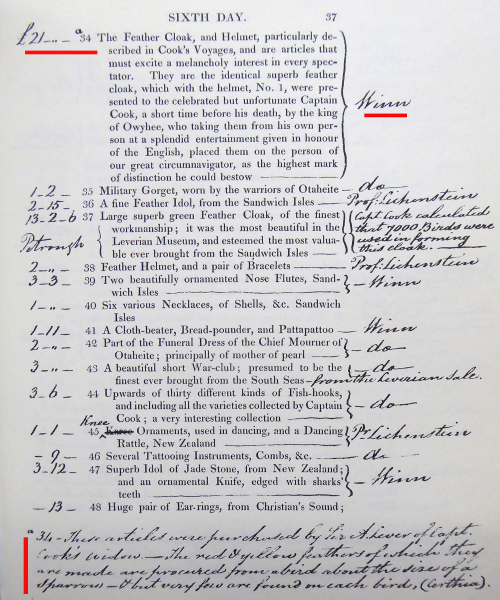 SIXTH DAY. 37
£21-"- a 34 The Feather Cloak, and Helmet, particularly de-
scribed in Cook's Voyages, and are articles that
must excite a melancholy interest in every spec-
tator. They are the identical superb feather
cloak, which with the helmet, No. 1, were pre-
sented to the celebrated but unfortunate Captain
Cook, a short time before his death, by the king
of Owyhee, who taking them from his own per-
son at a splendid entertainment given in honour
of the English, placed them on the person of
our great circumnavigator, as the highest mark
of distinction he could bestow — Winn
1-2- 35 Military Gorget, worn by the warriors of Otaheite — do
2-15- 36 A fine Feather Idol, from the Sandwich Isles — Prof. Lichenstein
13-2-6 37 Large superb green Feather Cloak, of the finest
workmanship; it was the most beautiful in the
Leverian Museum, and esteemed the most valua-
ble ever brought from the Sandwich Isles —
Capt Cook calculated
that 7000 Birds were
used in forming
this cloak.
2-"- 38 Feather Helmet, and a pair of Bracelets — Prof. Lichenstein
3-3- 39 Two beautifully ornamented Nose Flutes, Sand-
wich Isles — Winn
1-"- 40 Six various Necklaces, of Shells, &c. Sandwich
Isles
1-11- 41 A Cloth-beater, Bread-pounder, and Pattapattoo — Winn
2-"- 42 Part of the Funeral Dress of the Chief Mourner of
Otaheite; principally of mother of pearl — do
3-"- 43 A beautiful short War-club; presumed to be the — do
finest ever brought from the South Seas - from the Leverian Sale.
3-6- 44 Upwards of thirty different kinds of Fish-hooks,
and including all the varieties collected by Captain
Cook; a very interesting collection — do
Knee
1-1- 45 Ornaments, used in dancing, and a Dancing
Rattle, New Zealand — Pr. Lichenstein
-9- 46 Several Tattooing Instruments, Combs, &c. — do
3-12- 47 Superb Idol of Jade Stone, from New Zealand;
and an ornamental Knife, edged with sharks'
teeth — Winn
-13- 48 Huge pair of Ear-rings, from Christian's Sound;
a 34 - These articles were purchased by Sir A. Lever of Capt.
Cook's Widow. — The red & yellow feathers of which they
are made are procured from a bird about the size of a
Sparrow - & but very few are found on each bird, (Certhia).